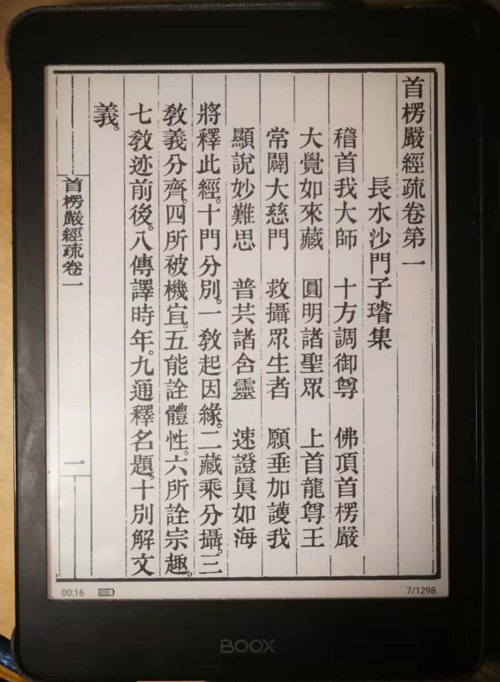 首楞嚴經疏卷第一
長水沙門子璿集
稽首我大師 十方調御尊 佛頂首楞嚴
大覺如來藏 圓明諸聖眾 上首龍尊王
常闢大慈門 救攝眾生者 願垂加護我
顯說妙難思 普共諸含靈 速證眞如海
將釋此經。十門分別。一教起因緣。二藏乘分攝。三
教義分齊。四所被機宜。五能詮體性。六所詮宗趣。
七教迹前後。八傳譯時年。九通釋名題。十別解文
義。
首楞嚴經疏卷一
一
00:16
7/1298
BOOX